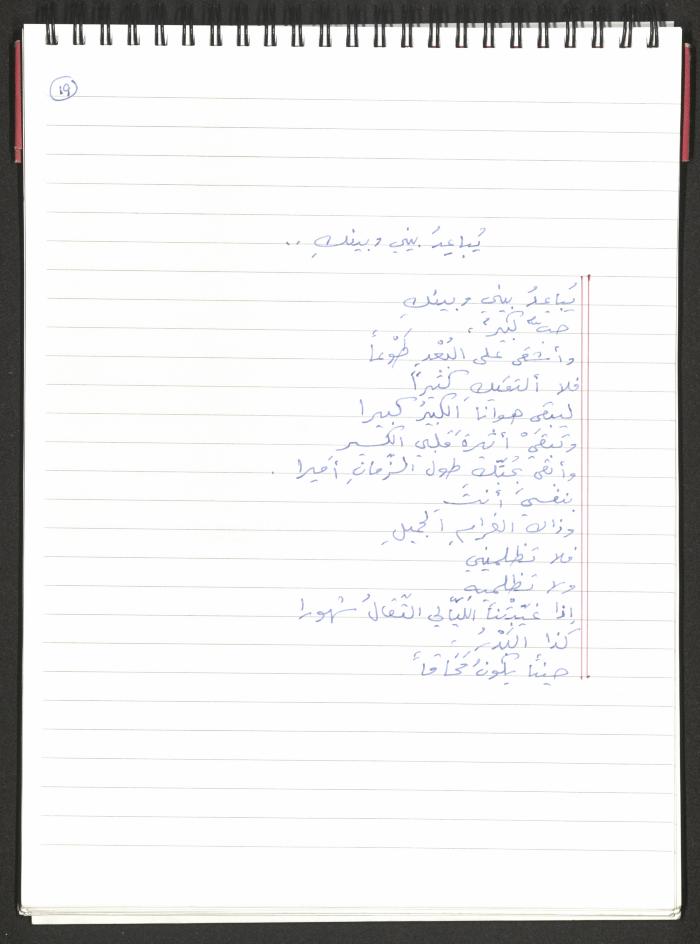 ١٩
يُباعِدُ بيني وبينكِ ..
يُباعِدُ بيني وبينكِ
حبٌّ كبيرٌ،
وأشقى على البُعْدِ طَوْعاً
فلا ألتقيك كثيراً
ليبقى هوانا الكبيرُ كبيرا
وتبقَيْ أثيرةَ قلبي الكسير
وأبقى بحبّكِ طول الزّمانِ أميرا .
بنفسيَ أنتَ
وذاك الغرامِ الجميلِ
فلا تظلميني
ولا تظلميه
إذا غيّبَتْنا اللّيالي الثّقالُ شهورا
كذا البَدْرُ
حيناً يكونُ مَحَاقاً